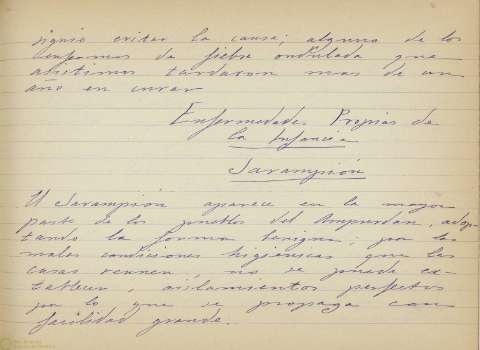 siguió evitar la causa; alguno de los
enfermos de fiebre ondulada que
asistimos tardaron mas de un
año en curar
Enfermedades Propias de
la Infancia
Sarampión
El Sarampión aparece en la mayor
parte de los pueblos del Ampurdan, adop-
tando la forma benigna; por las
malas condiciones higiénicas que las
casas reunen, no se puede es-
tablecer, aislamientos perfectos
por lo que se propaga con
facilidad grande.